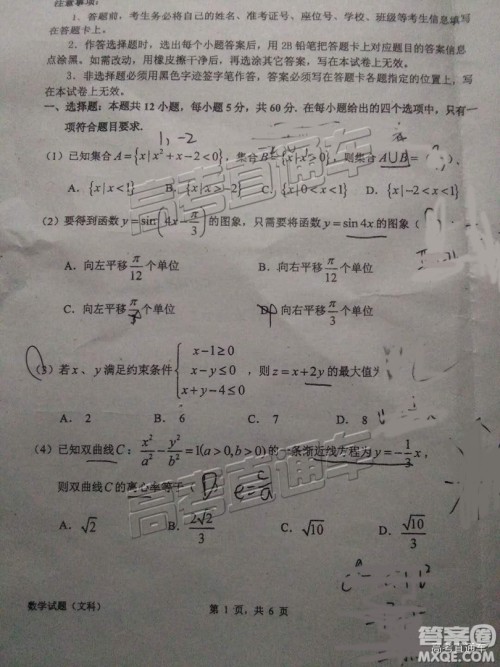 注意事项：
1．答题前，考生务必将自己的姓名、准考证号、座位号、学校、班级等考生信息填写
在答题卡上。
2．作答选择题时，选出每个小题答案后，用 2B 铅笔把答题卡上对应题目的答案信息
点涂黑。如需改动，用橡皮擦干净后，再选涂其它答案，写在本试卷上无效。
3．非选择题必须用黑色字迹签字笔作答，答案必须写在答题卡各题指定的位置上，写
在本试卷上无效。
一、选择题：本题共 12 小题，每小题 5 分，共 60 分．在每小题给出的四个选项中，只有
一项符合题目要求．
1，-2
（1）已知集合 A={x|x²+x-2<0}，集合 B={x| >0}，则集合 A∪B=（ ）．
A．{x|x<1} B．{x|x>-2} C．{x|0<x<1} D．{x|-2<x<1}
（2）要得到函数 y=sin(4x-π/3) 的图象，只需要将函数 y=sin4x 的图象（
A．向左平移 π/12 个单位 B．向右平移 π/12 个单位
C．向左平移 π/3 个单位 D．向右平移 π/3 个单位
（3）若 x、y 满足约束条件 { x-1≥0
x-y≤0
x+y-4≤0 ，则 z=x+2y 的最大值为
A．2 B．6 C．7 D．8
（4）已知双曲线 C：x²/a²-y²/b²=1(a>0,b>0) 的一条渐近线方程为 y=-1/3 x，
则双曲线 C 的离心率等于（ D e=c/a
A．√2 B．2√2/3 C．√10 D．√10/3
数学试题（文科） 第 1 页，共 6 页
高考直通车
答案圈
MXQE.COM
高考直通车